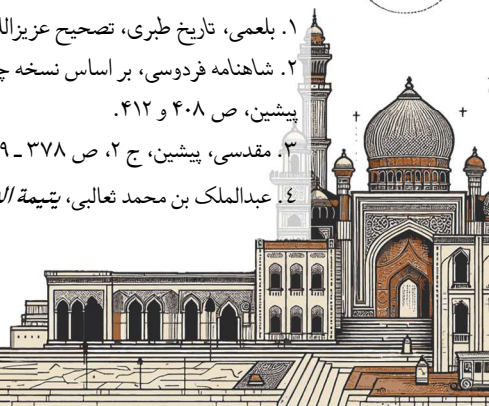 ۱. بلعمی، تاریخ طبری، تصحیح عزیزالل
۲. شاهنامه فردوسی، بر اساس نسخه چ
پیشین، ص ۴۰۸ و ۴۱۲.
۳. مقدسی، پیشین، ج ۲، ص ۳۷۸ ـ ۹
٤. عبدالملک بن محمد ثعالبی، یتیمة ال